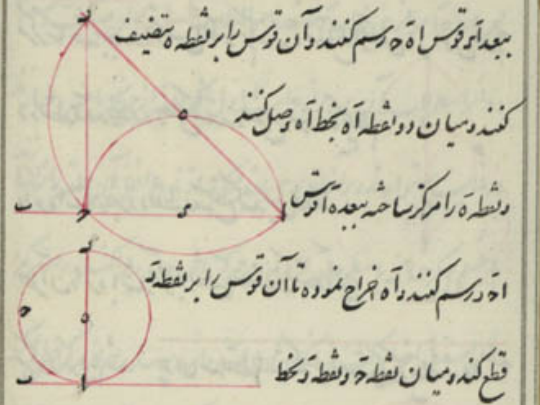 ببعد آء قوس اه ح رسم کنند و آن قوس را بر نقطه ه تنصیف
کنند و میان دو نقطه آه بخط آه وصل کنند
و نقطه ه را مرکز ساخته ببعد ه آ قوس
اح د رسم کنند و آه اخراج نموده تا آن قوس را بر نقطه د
قطع کند و میان نقطه ح و نقطه د بخط